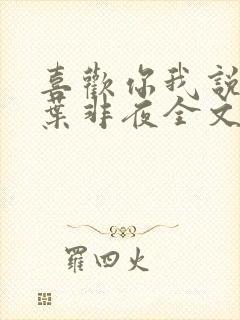 喜歡你我說
葉非夜全文
羅四火